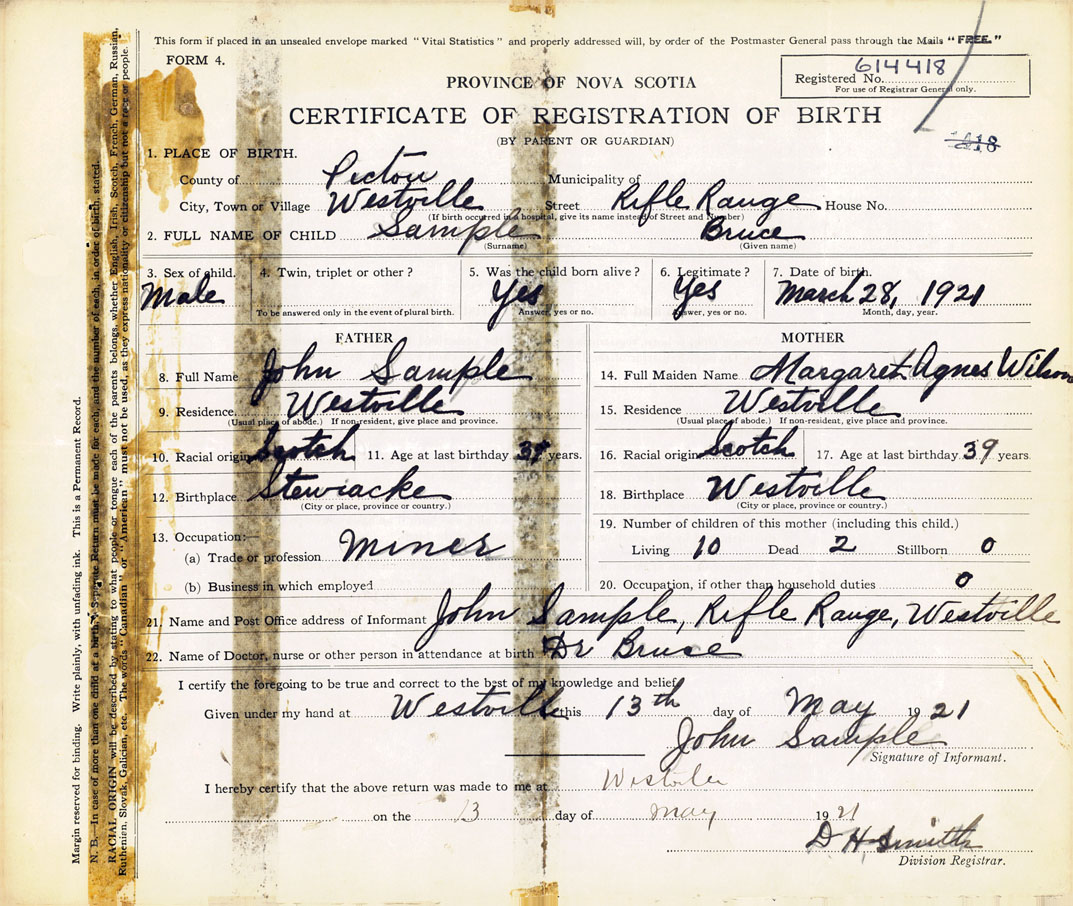 This form if placed in an unsealed envelope marked "Vital Statistics" and properly addressed will, by order of the Postmaster General pass through the Mails "FREE."
FORM 4.
614418
Registered No.
For use of Registrar General only.
PROVINCE OF NOVA SCOTIA
CERTIFICATE OF REGISTRATION OF BIRTH
(BY PARENT OR GUARDIAN)
1. PLACE OF BIRTH.
County of Pictou Municipality of
City, Town or Village Westville Street Rifle Range House No.
(If birth occurred in a hospital, give its name instead of Street and Number)
2. FULL NAME OF CHILD Sample Bruce
(Surname) (Given name)
3. Sex of child. 4. Twin, triplet or other? 5. Was the child born alive? 6. Legitimate? 7. Date of birth.
Male Yes Yes March 28, 1921
To be answered only in the event of plural birth. Answer, yes or no. Answer, yes or no. Month, day, year.
FATHER MOTHER
8. Full Name John Sample 14. Full Maiden Name Margaret Agnes Wilson
9. Residence. Westville 15. Residence Westville
(Usual place of abode.) If non-resident, give place and province. (Usual place of abode.) If non-resident, give place and province.
10. Racial origin Scotch 11. Age at last birthday 39 years. 16. Racial origin Scotch 17. Age at last birthday 39 years.
12. Birthplace Stewiacke 18. Birthplace Westville
(City or place, province or country.) (City or place, province or country.)
13. Occupation:— 19. Number of children of this mother (including this child.)
(a) Trade or profession Miner Living 10 Dead 2 Stillborn 0
(b) Business in which employed 20. Occupation, if other than household duties 0
21. Name and Post Office address of Informant John Sample, Rifle Range, Westville
22. Name of Doctor, nurse or other person in attendance at birth Dr Bruce
I certify the foregoing to be true and correct to the best of my knowledge and belief.
Given under my hand at Westville this 13th day of May 1921
John Sample
Signature of Informant.
I hereby certify that the above return was made to me at Westville
on the 13 day of May 1921
D H Smith
Division Registrar.
Margin reserved for binding. Write plainly, with unfading ink. This is a Permanent Record.
N. B.—In case of more than one child at a birth, a Separate Return must be made for each, and the number of each, in order of birth, stated.
RACIAL ORIGIN will be described by stating to what people or tongue each of the parents belongs, whether English, Irish, Scotch, French, German, Russian,
Ruthenian, Slovak, Galician, etc. The words "Canadian" or "American" must not be used, as they express nationality or citizenship but not a race or people.